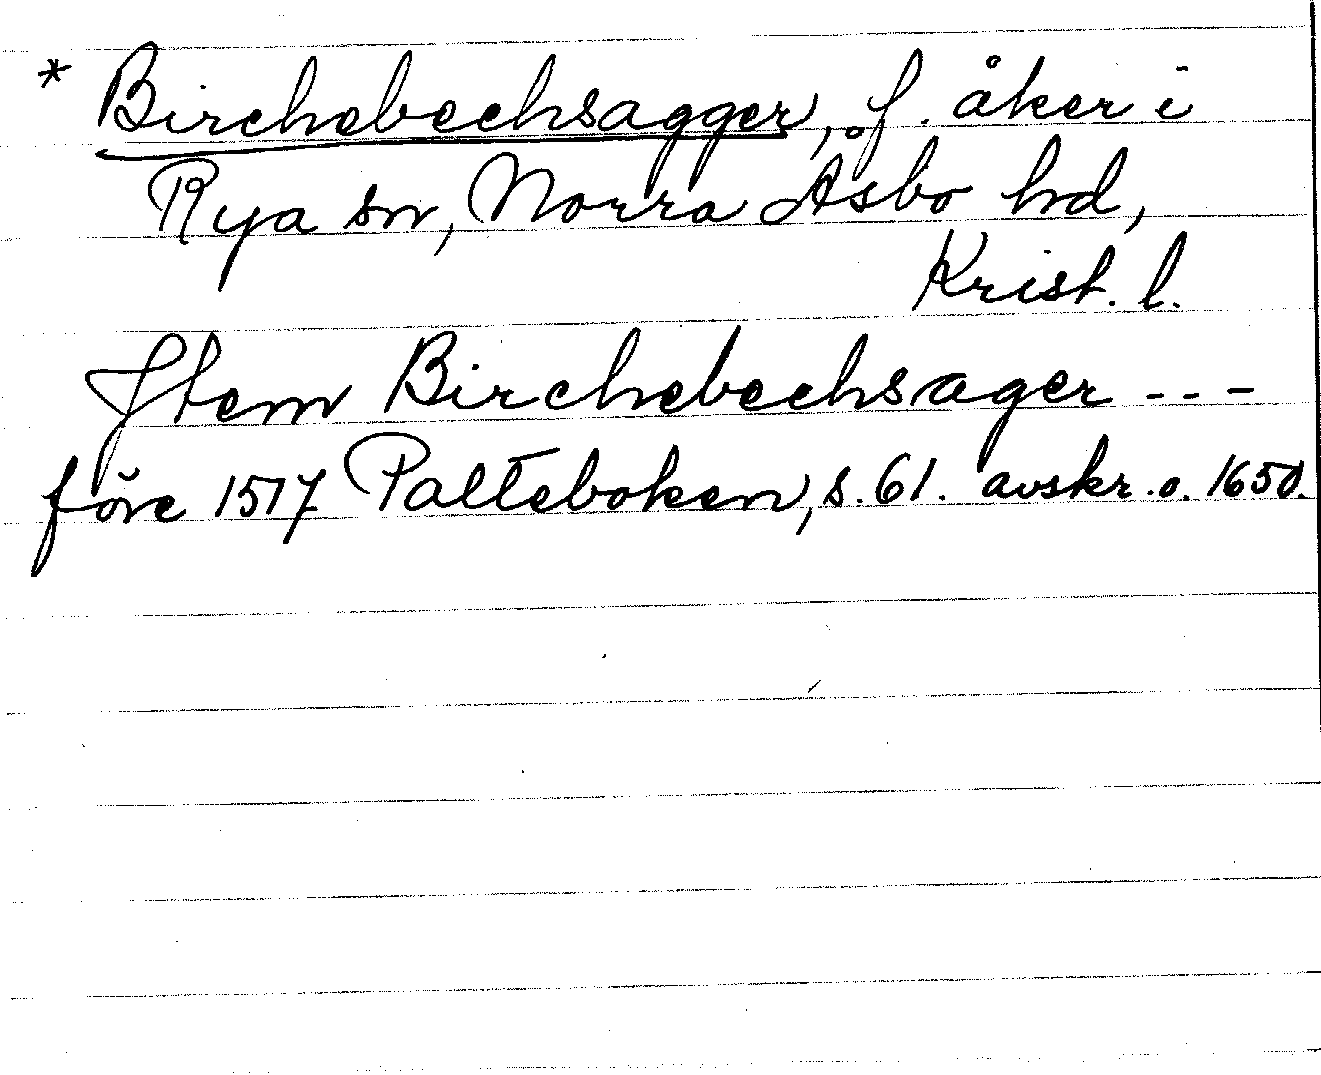 * Birchebechsagger, f. åker i
Rya sn, Norra Åsbo hd,
Krist. l.
Jtem Birchebechsager - - -
före 1517 Palteboken, s. 61. avskr. o. 1650.